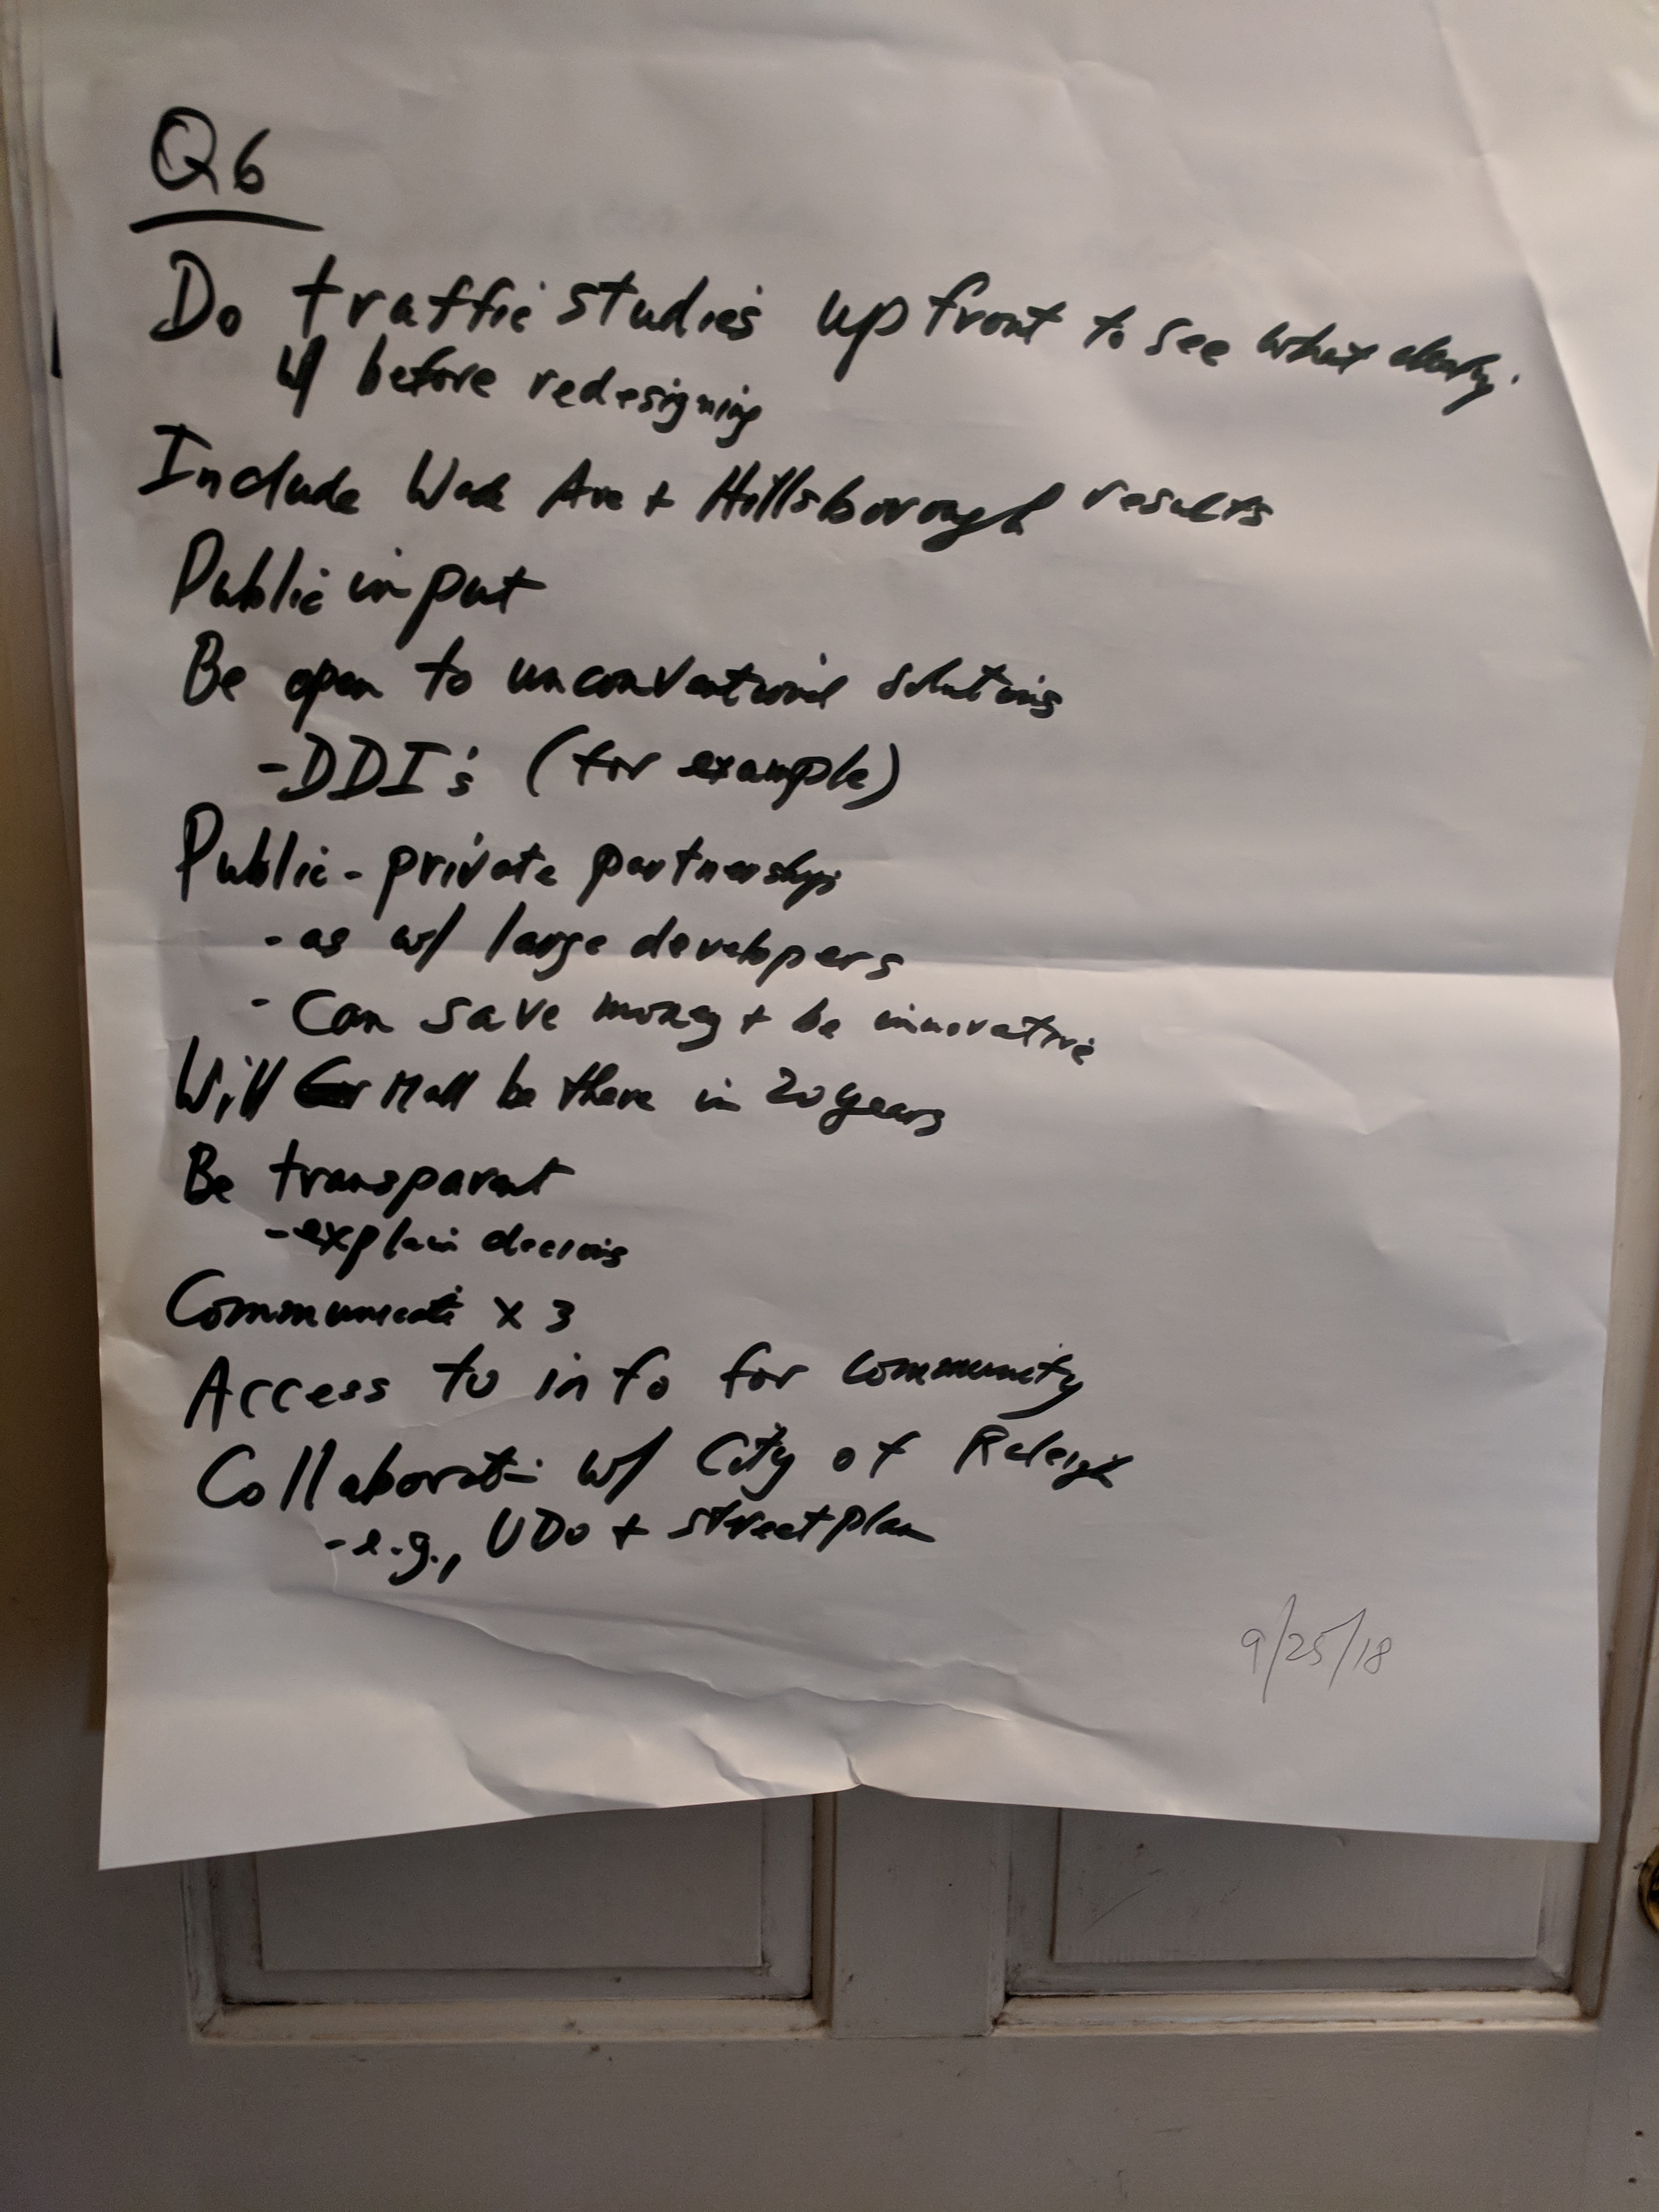 Q6
Do traffic studies up front to see what dealing
w/ before redesigning
Include Wade Ave + Hillsborough results
Public input
Be open to unconventional solutions
- DDI's (for example)
Public-private partnerships
- as w/ large developers
- Can save money + be innovative
Will Mall be there in 20 years
Be transparent
- explain decisions
Communicate x 3
Access to info for community
Collaborate w/ City of Raleigh
- e.g., UDO + street plan
9/25/18